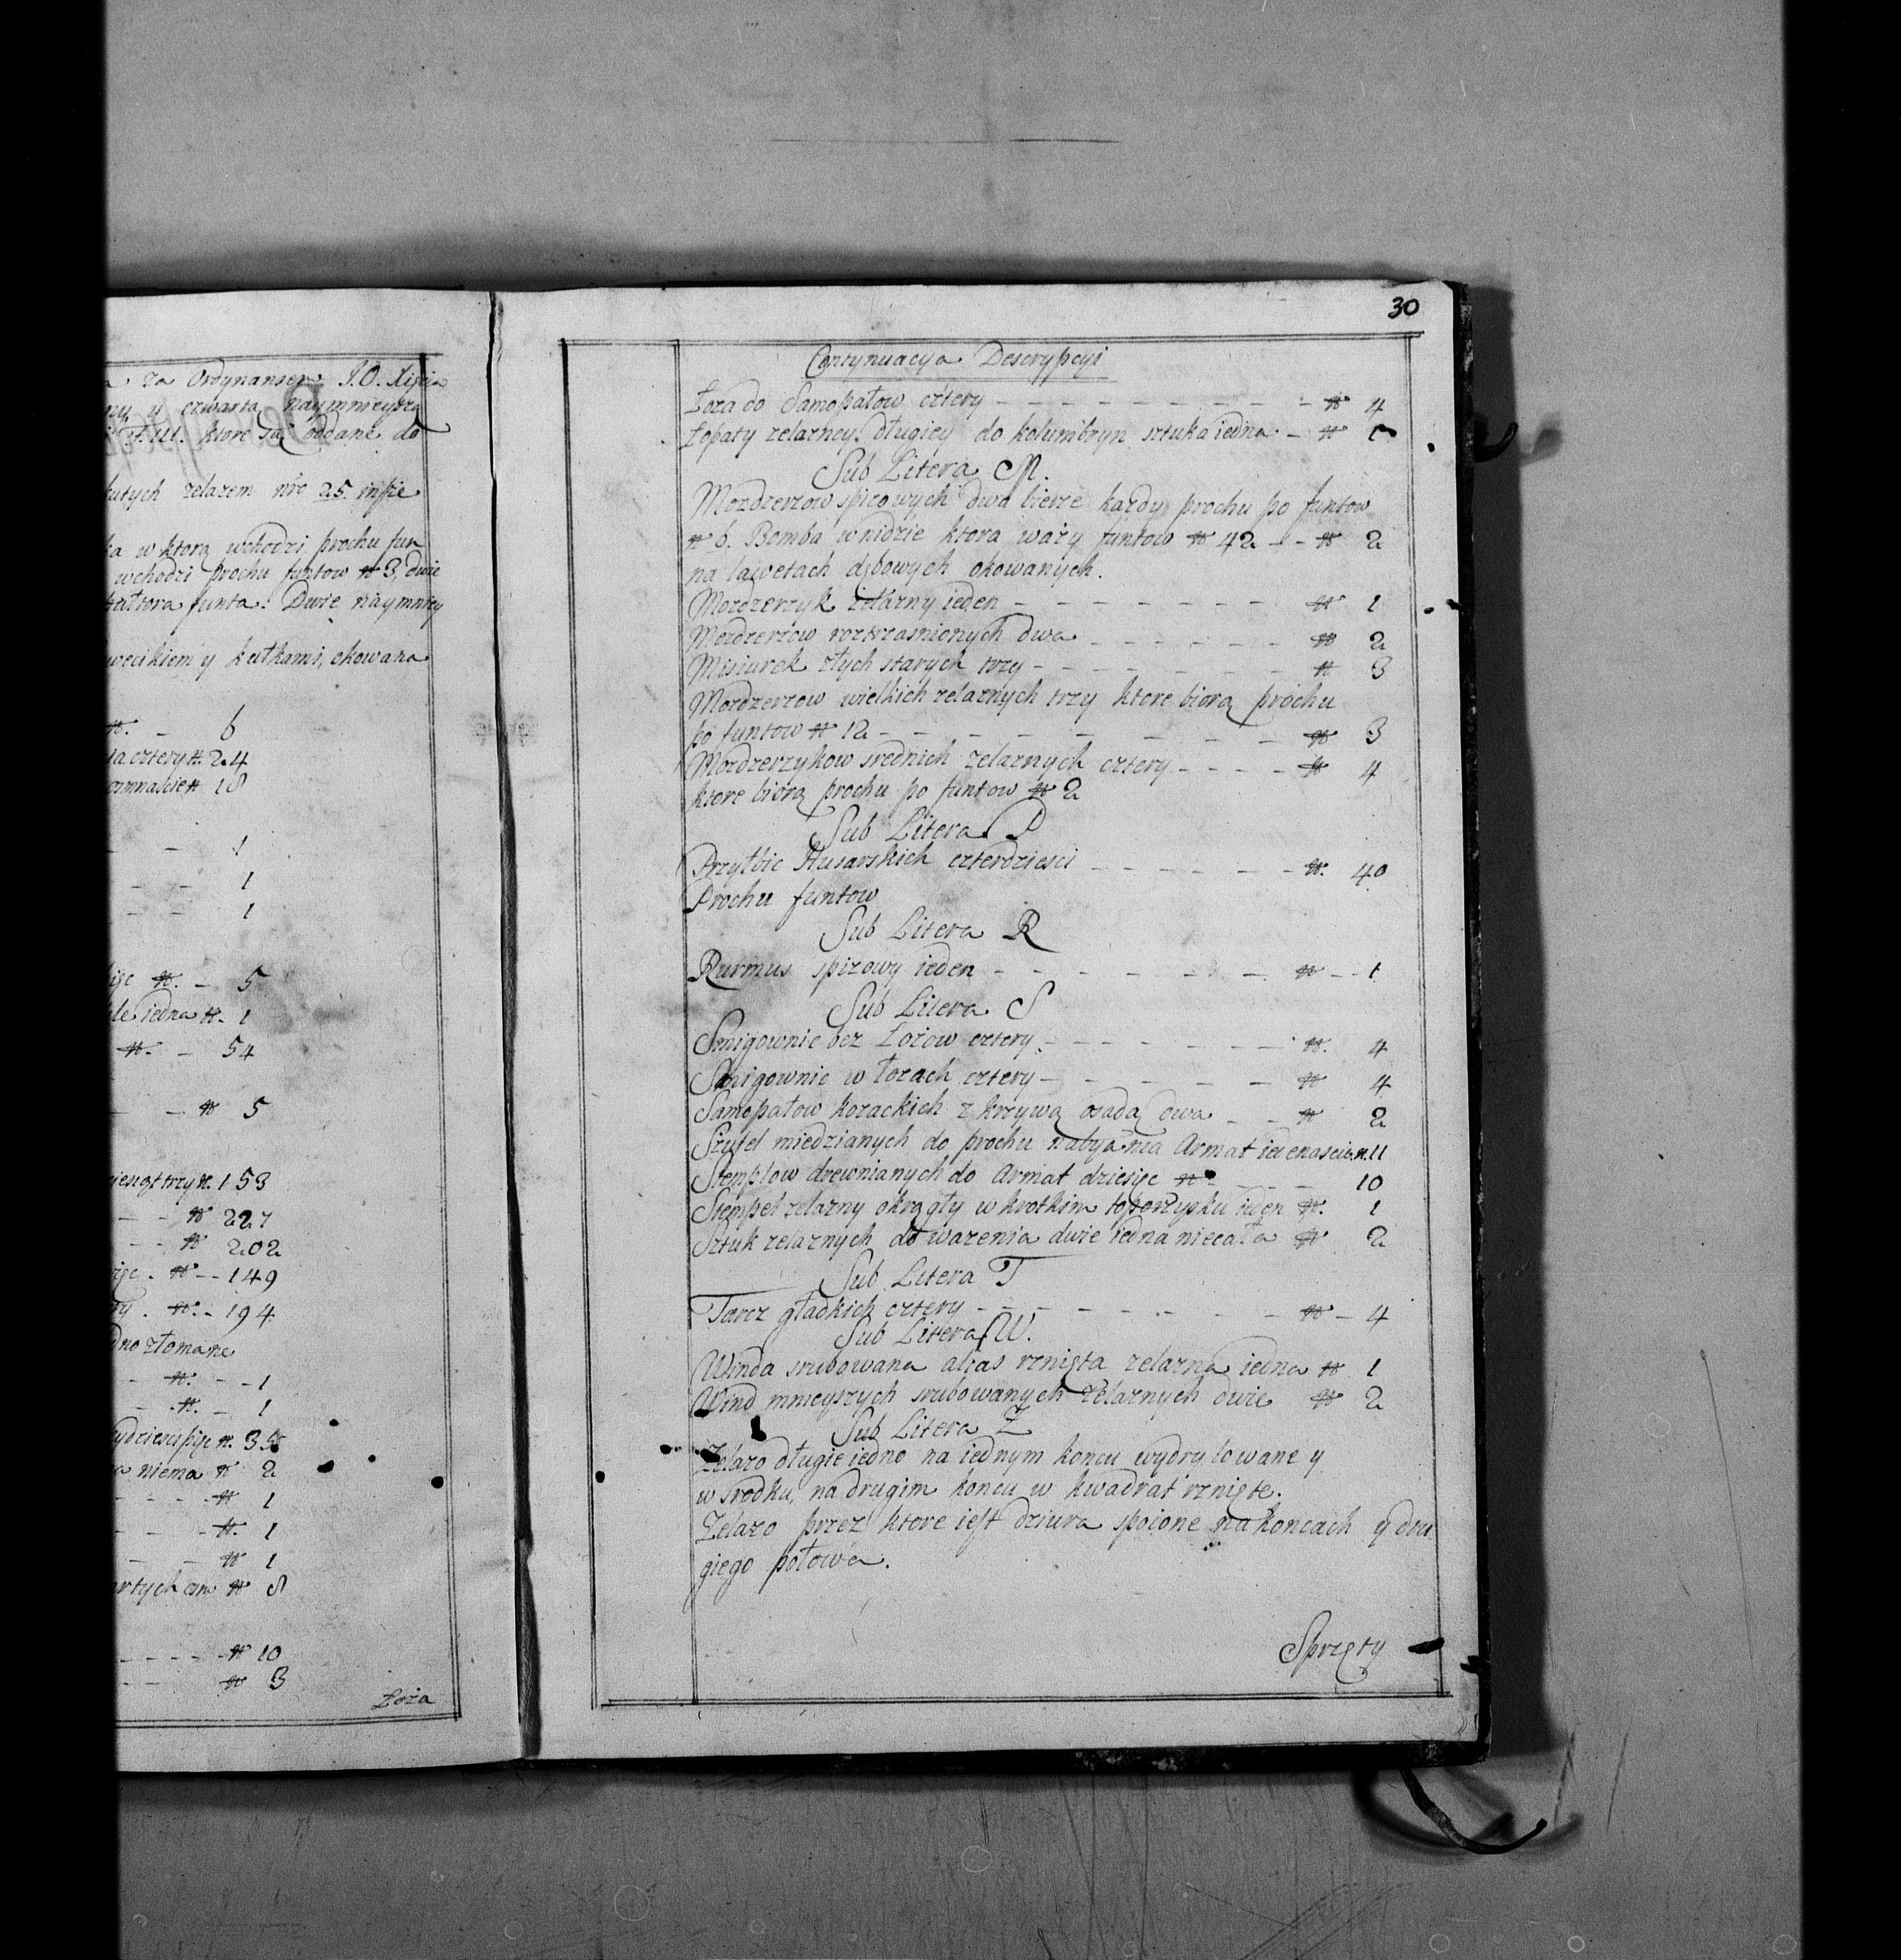 za Ordynansem J.O. Xięcia
y czwarta naymnieysza
które są oddane do
kutych zelazem nro 25. inszie
ka w ktorą wchodzi prochu fun
wchodzi prochu funtow # 3, dwie
funta. Dwie naymniey
y kulkami, okowana
#. – 6
cztery #. 24
#. 18
– – 1
– – 1
– – 1
#. – 5
iedna #. 1
#. – 54
– – # 5
trzy #. 153
– – # 227
– – # 202
#. – – 149
#. – 194
złomane
– #. – – 1
– #. – 1
#. 35
niema # 2
– – – – # 1
– – – #. 1
– – # 1
# 8
– – – – – # 10
– – # 3
Łoża
30
Contynuacya Descrypcyi
Łoza do Samopałow cztery – – – – – – – – – # 4
Łopaty zelazney długiey do kolumbryn sztuka iedna – # 1
Sub Litera M.
Mozdzerzow spizowych dwa bierze kazdy prochu po funtow
# 6. Bomba wnidzie ktora wazy funtow # 42 – – # 2
na lawetach dębowych okowanych.
Mozdzerzyk zelazny ieden – – – – – – – # 1
Mozdzerzow roztrzasnionych dwa – – – – – – # 2
Misiurek złych starych trzy – – – – – – – # 3
Mozdzerzow wielkich zelaznych trzy ktore biorą prochu
po funtow # 12 – – – – – – – – – # 3
Mozdzerzykow srednich zelaznych cztery – – – – # 4
ktore biorą prochu po funtow # 2
Sub Litera P
Przyłbic Husarskich czterdziesci – – – – – – #. 40
Prochu funtow
Sub Litera R
Rurmus spizowy ieden – – – – – – – # – – 1
Sub Litera S
Smigownic bez Łożow cztery – – – – – – – #. 4
Smigownic w łozach cztery – – – – – – # 4
Samopałow kozackich z krzywą osadą dwa – – # 2
Szufel miedzianych do prochu nabyania Armat iedenascie #. 11
Stemplow drewnianych do Armat dziesięc # – – – 10
Stempel zelazny okrągły w krotkim toporzysku ieden #. 1
Sztuk zelaznych do wazenia dwie iedna niecała # 2
Sub Litera T
Tarcz gładkich cztery – – – – – – – – # – 4
Sub Litera W.
Winda srubowana alias rznięta zelazna iedna # 1
Wind mnieyszych srubowanych zelaznych dwie # 2
Sub Litera Z
Zelazo długie iedno na iednym koncu wydrylowane y
w srodku, na drugim koncu w kwadrat rznięte.
Zelazo przez ktore iest dziura spoione na koncach y dru
giego połowa.
Sprzęty